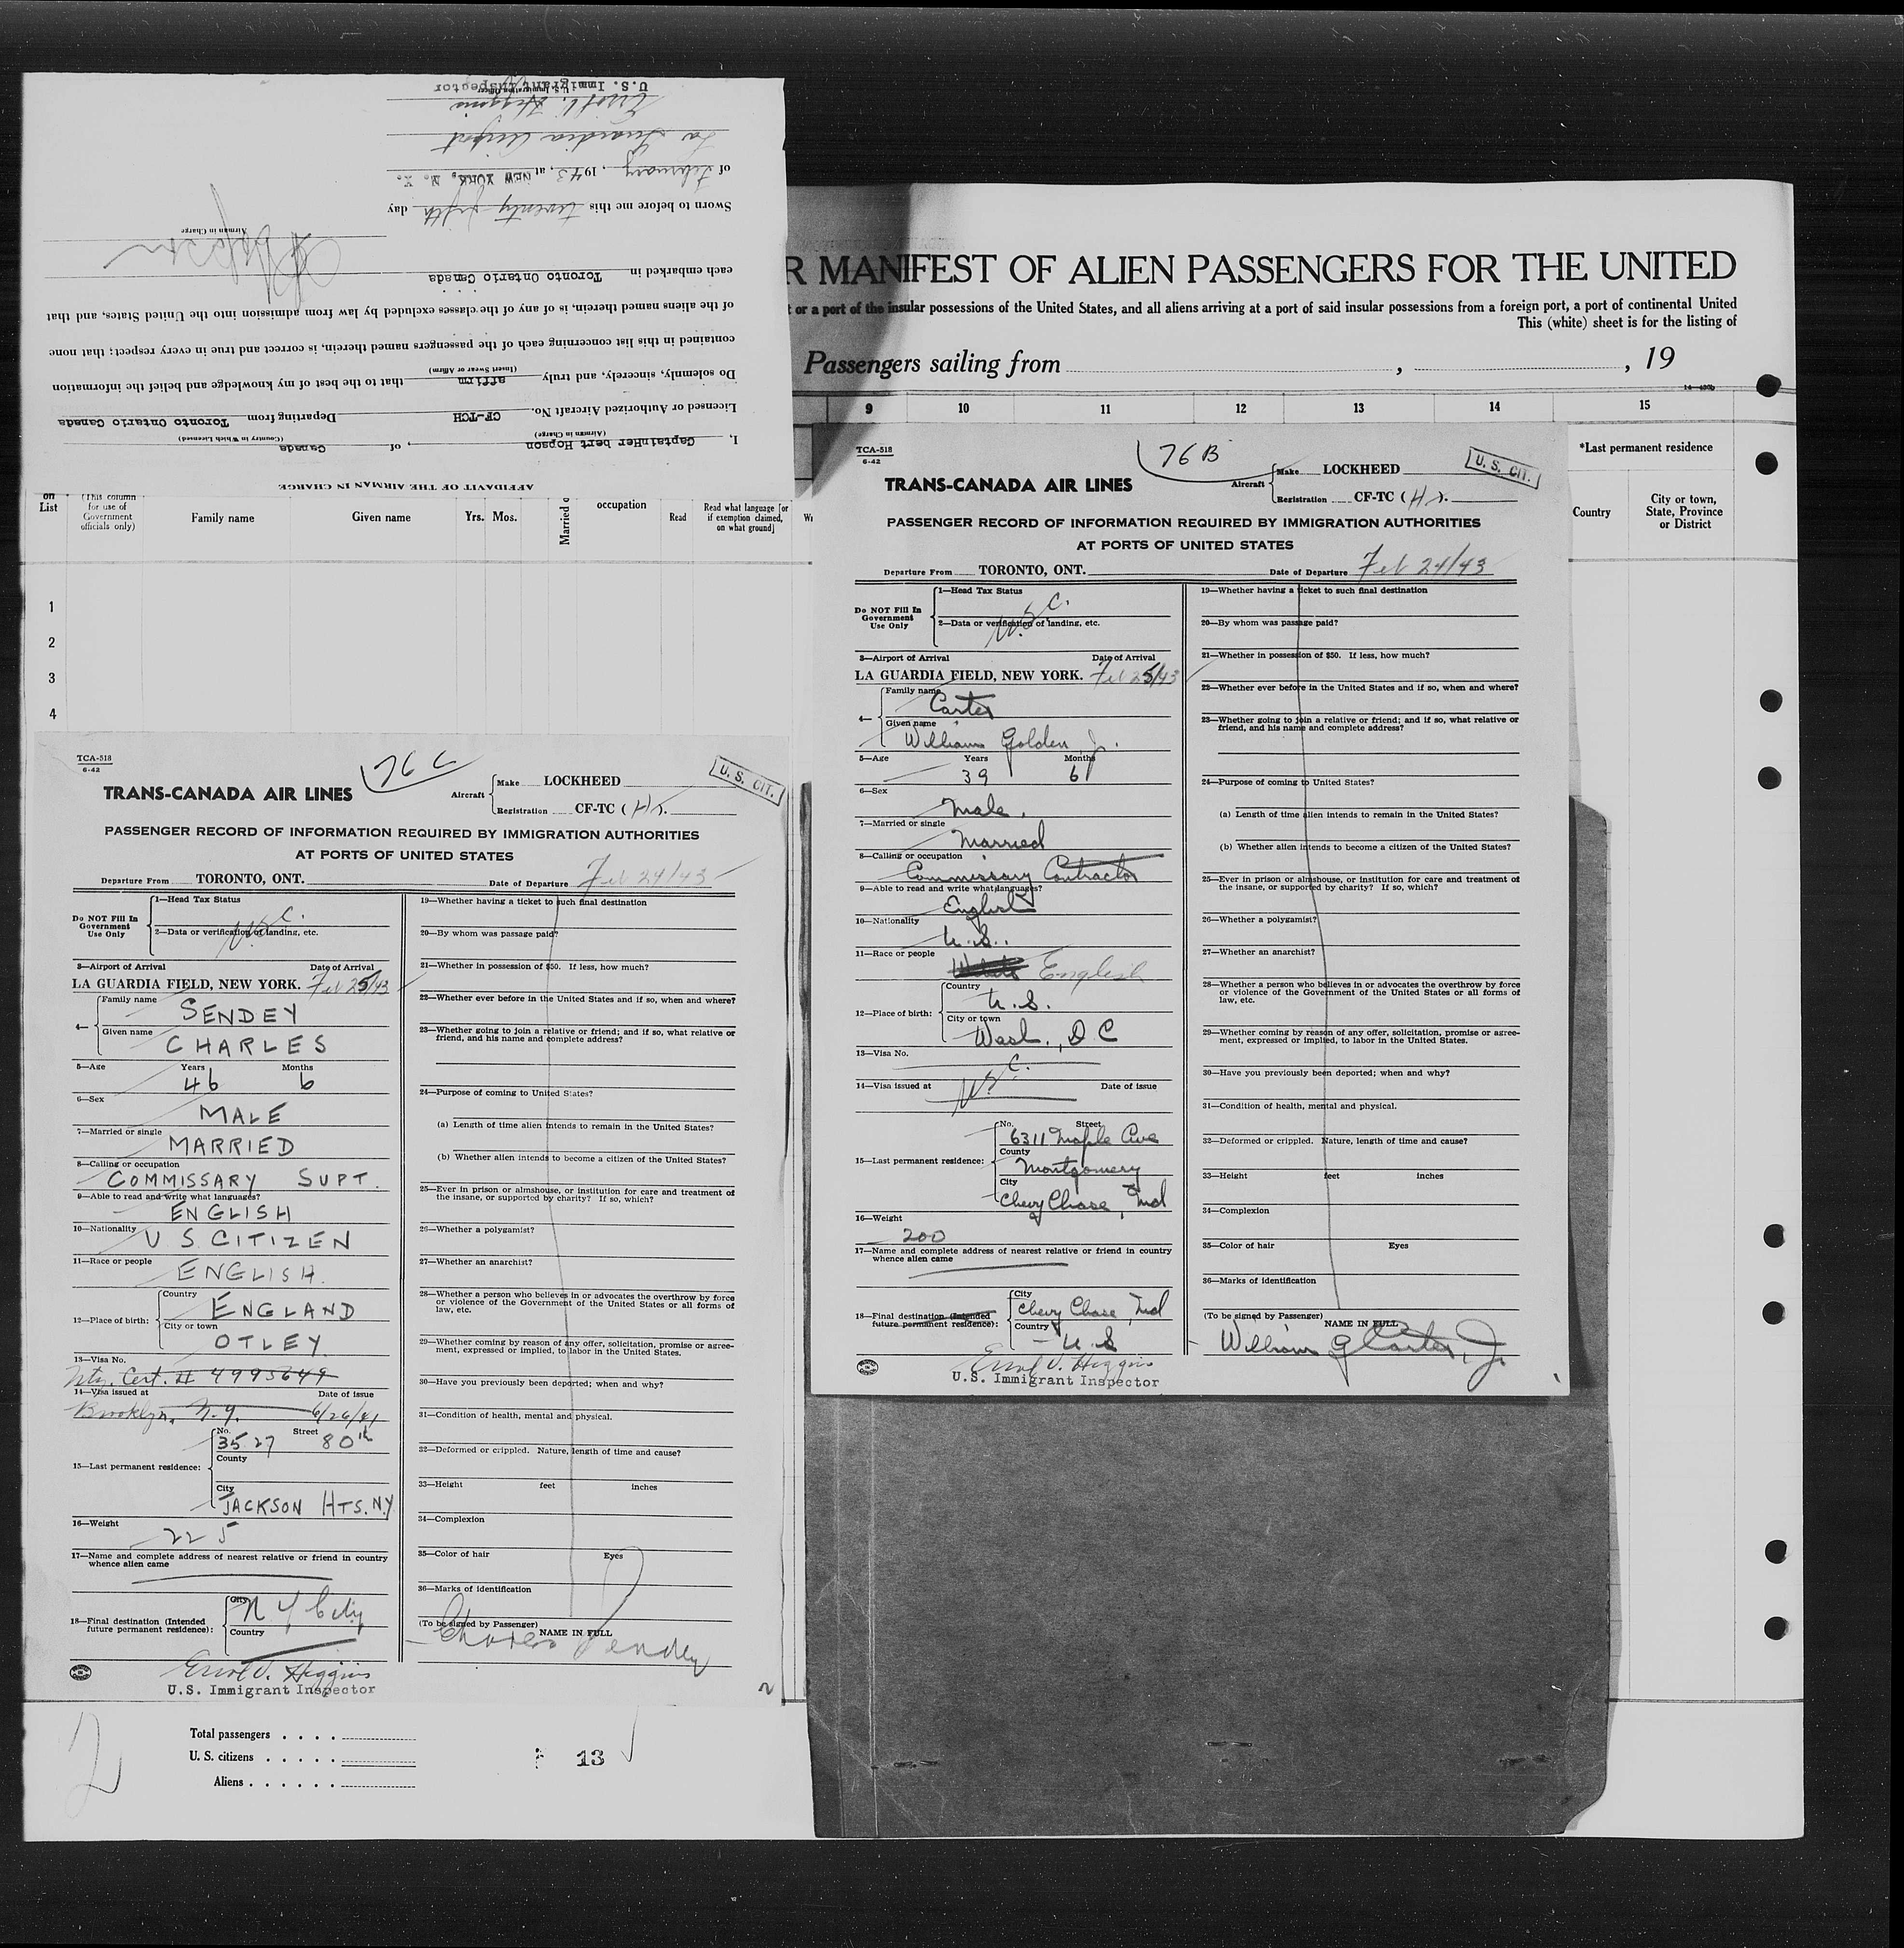 AFFIDAVIT OF THE AIRMAN IN CHARGE
I, Captain Herbert Hopson, of Canada
(Airman in Charge) (Country in Which Licensed)
Licensed or Authorized Aircraft No. CF-TCH Departing from Toronto Ontario Canada
Do solemnly, sincerely, and truly affirm that to the best of my knowledge and belief the information
(Insert Swear or Affirm)
contained in this list concerning each of the passengers named therein, is correct and true in every respect; that none
of the aliens named therein, is of any of the classes excluded by law from admission into the United States, and that
each embarked in Toronto Ontario Canada
Airman in Charge
Sworn to before me this twenty fifth day
of February, 1943, at NEW YORK, N. Y.
La Guardia Airport
Errol V. Higgins
U.S. Immigrant Inspector
R MANIFEST OF ALIEN PASSENGERS FOR THE UNITED
t or a port of the insular possessions of the United States, and all aliens arriving at a port of said insular possessions from a foreign port, a port of continental United
This (white) sheet is for the listing of
Passengers sailing from , , 19
9 10 11 12 13 14 15
*Last permanent residence
Country City or town, State, Province or District
on List
(This column for use of Government officials only)
Family name Given name Yrs. Mos. Married o occupation Read Read what language [or if exemption claimed, on what ground] Wr
1
2
3
4
TCA-518
6-42
76 C
U. S. CIT.
TRANS-CANADA AIR LINES
Aircraft Make LOCKHEED
Registration CF-TC (H).
PASSENGER RECORD OF INFORMATION REQUIRED BY IMMIGRATION AUTHORITIES
AT PORTS OF UNITED STATES
Departure From TORONTO, ONT. Date of Departure Feb 24/43
Do NOT Fill In Government Use Only
1—Head Tax Status
U.S.C.
2—Data or verification of landing, etc.
3—Airport of Arrival Date of Arrival
LA GUARDIA FIELD, NEW YORK. Feb 25/43
4— Family name SENDEY
Given name CHARLES
5—Age Years 46 Months 6
6—Sex MALE
7—Married or single MARRIED
8—Calling or occupation COMMISSARY SUPT.
9—Able to read and write what languages? ENGLISH
10—Nationality U S CITIZEN
11—Race or people ENGLISH.
12—Place of birth: Country ENGLAND
City or town OTLEY.
13—Visa No. Ntz. Cert. # 4995649
14—Visa issued at Date of issue
Brooklyn, N.Y. 6/26/41
15—Last permanent residence: No. 35 27 Street 80th
County
City JACKSON HTS. N.Y
16—Weight 225
17—Name and complete address of nearest relative or friend in country whence alien came
18—Final destination (Intended future permanent residence): City N Y City
Country
Errol V. Higgins
U.S. Immigrant Inspector
19—Whether having a ticket to such final destination
20—By whom was passage paid?
21—Whether in possession of $50. If less, how much?
22—Whether ever before in the United States and if so, when and where?
23—Whether going to join a relative or friend; and if so, what relative or friend, and his name and complete address?
24—Purpose of coming to United States?
(a) Length of time alien intends to remain in the United States?
(b) Whether alien intends to become a citizen of the United States?
25—Ever in prison or almshouse, or institution for care and treatment of the insane, or supported by charity? If so, which?
26—Whether a polygamist?
27—Whether an anarchist?
28—Whether a person who believes in or advocates the overthrow by force or violence of the Government of the United States or all forms of law, etc.
29—Whether coming by reason of any offer, solicitation, promise or agreement, expressed or implied, to labor in the United States.
30—Have you previously been deported; when and why?
31—Condition of health, mental and physical.
32—Deformed or crippled. Nature, length of time and cause?
33—Height feet inches
34—Complexion
35—Color of hair Eyes
36—Marks of identification
(To be signed by Passenger) NAME IN FULL
Charles Sendey
2
Total passengers
U. S. citizens
Aliens
13
TCA-518
6-42
76 B
U. S. CIT.
TRANS-CANADA AIR LINES
Aircraft Make LOCKHEED
Registration CF-TC (H).
PASSENGER RECORD OF INFORMATION REQUIRED BY IMMIGRATION AUTHORITIES
AT PORTS OF UNITED STATES
Departure From TORONTO, ONT. Date of Departure Feb 24/43
Do NOT Fill In Government Use Only
1—Head Tax Status
U.S.C.
2—Data or verification of landing, etc.
3—Airport of Arrival Date of Arrival
LA GUARDIA FIELD, NEW YORK. Feb 25/43
4— Family name Carter
Given name William Golden Jr.
5—Age Years 39 Months 6
6—Sex Male.
7—Married or single Married
8—Calling or occupation Commissary Contractor
9—Able to read and write what languages? English
10—Nationality U.S.
11—Race or people White English
12—Place of birth: Country U.S.
City or town Wash., D C
13—Visa No.
U.S.C.
14—Visa issued at Date of issue
15—Last permanent residence: No. Street 6311 Maple Ave
County Montgomery
City Chevy Chase, Md
16—Weight 200
17—Name and complete address of nearest relative or friend in country whence alien came
18—Final destination (Intended future permanent residence): City Chevy Chase, Md
Country U.S
Errol V. Higgins
U.S. Immigrant Inspector
19—Whether having a ticket to such final destination
20—By whom was passage paid?
21—Whether in possession of $50. If less, how much?
22—Whether ever before in the United States and if so, when and where?
23—Whether going to join a relative or friend; and if so, what relative or friend, and his name and complete address?
24—Purpose of coming to United States?
(a) Length of time alien intends to remain in the United States?
(b) Whether alien intends to become a citizen of the United States?
25—Ever in prison or almshouse, or institution for care and treatment of the insane, or supported by charity? If so, which?
26—Whether a polygamist?
27—Whether an anarchist?
28—Whether a person who believes in or advocates the overthrow by force or violence of the Government of the United States or all forms of law, etc.
29—Whether coming by reason of any offer, solicitation, promise or agreement, expressed or implied, to labor in the United States.
30—Have you previously been deported; when and why?
31—Condition of health, mental and physical.
32—Deformed or crippled. Nature, length of time and cause?
33—Height feet inches
34—Complexion
35—Color of hair Eyes
36—Marks of identification
(To be signed by Passenger) NAME IN FULL
William G Carter, Jr.